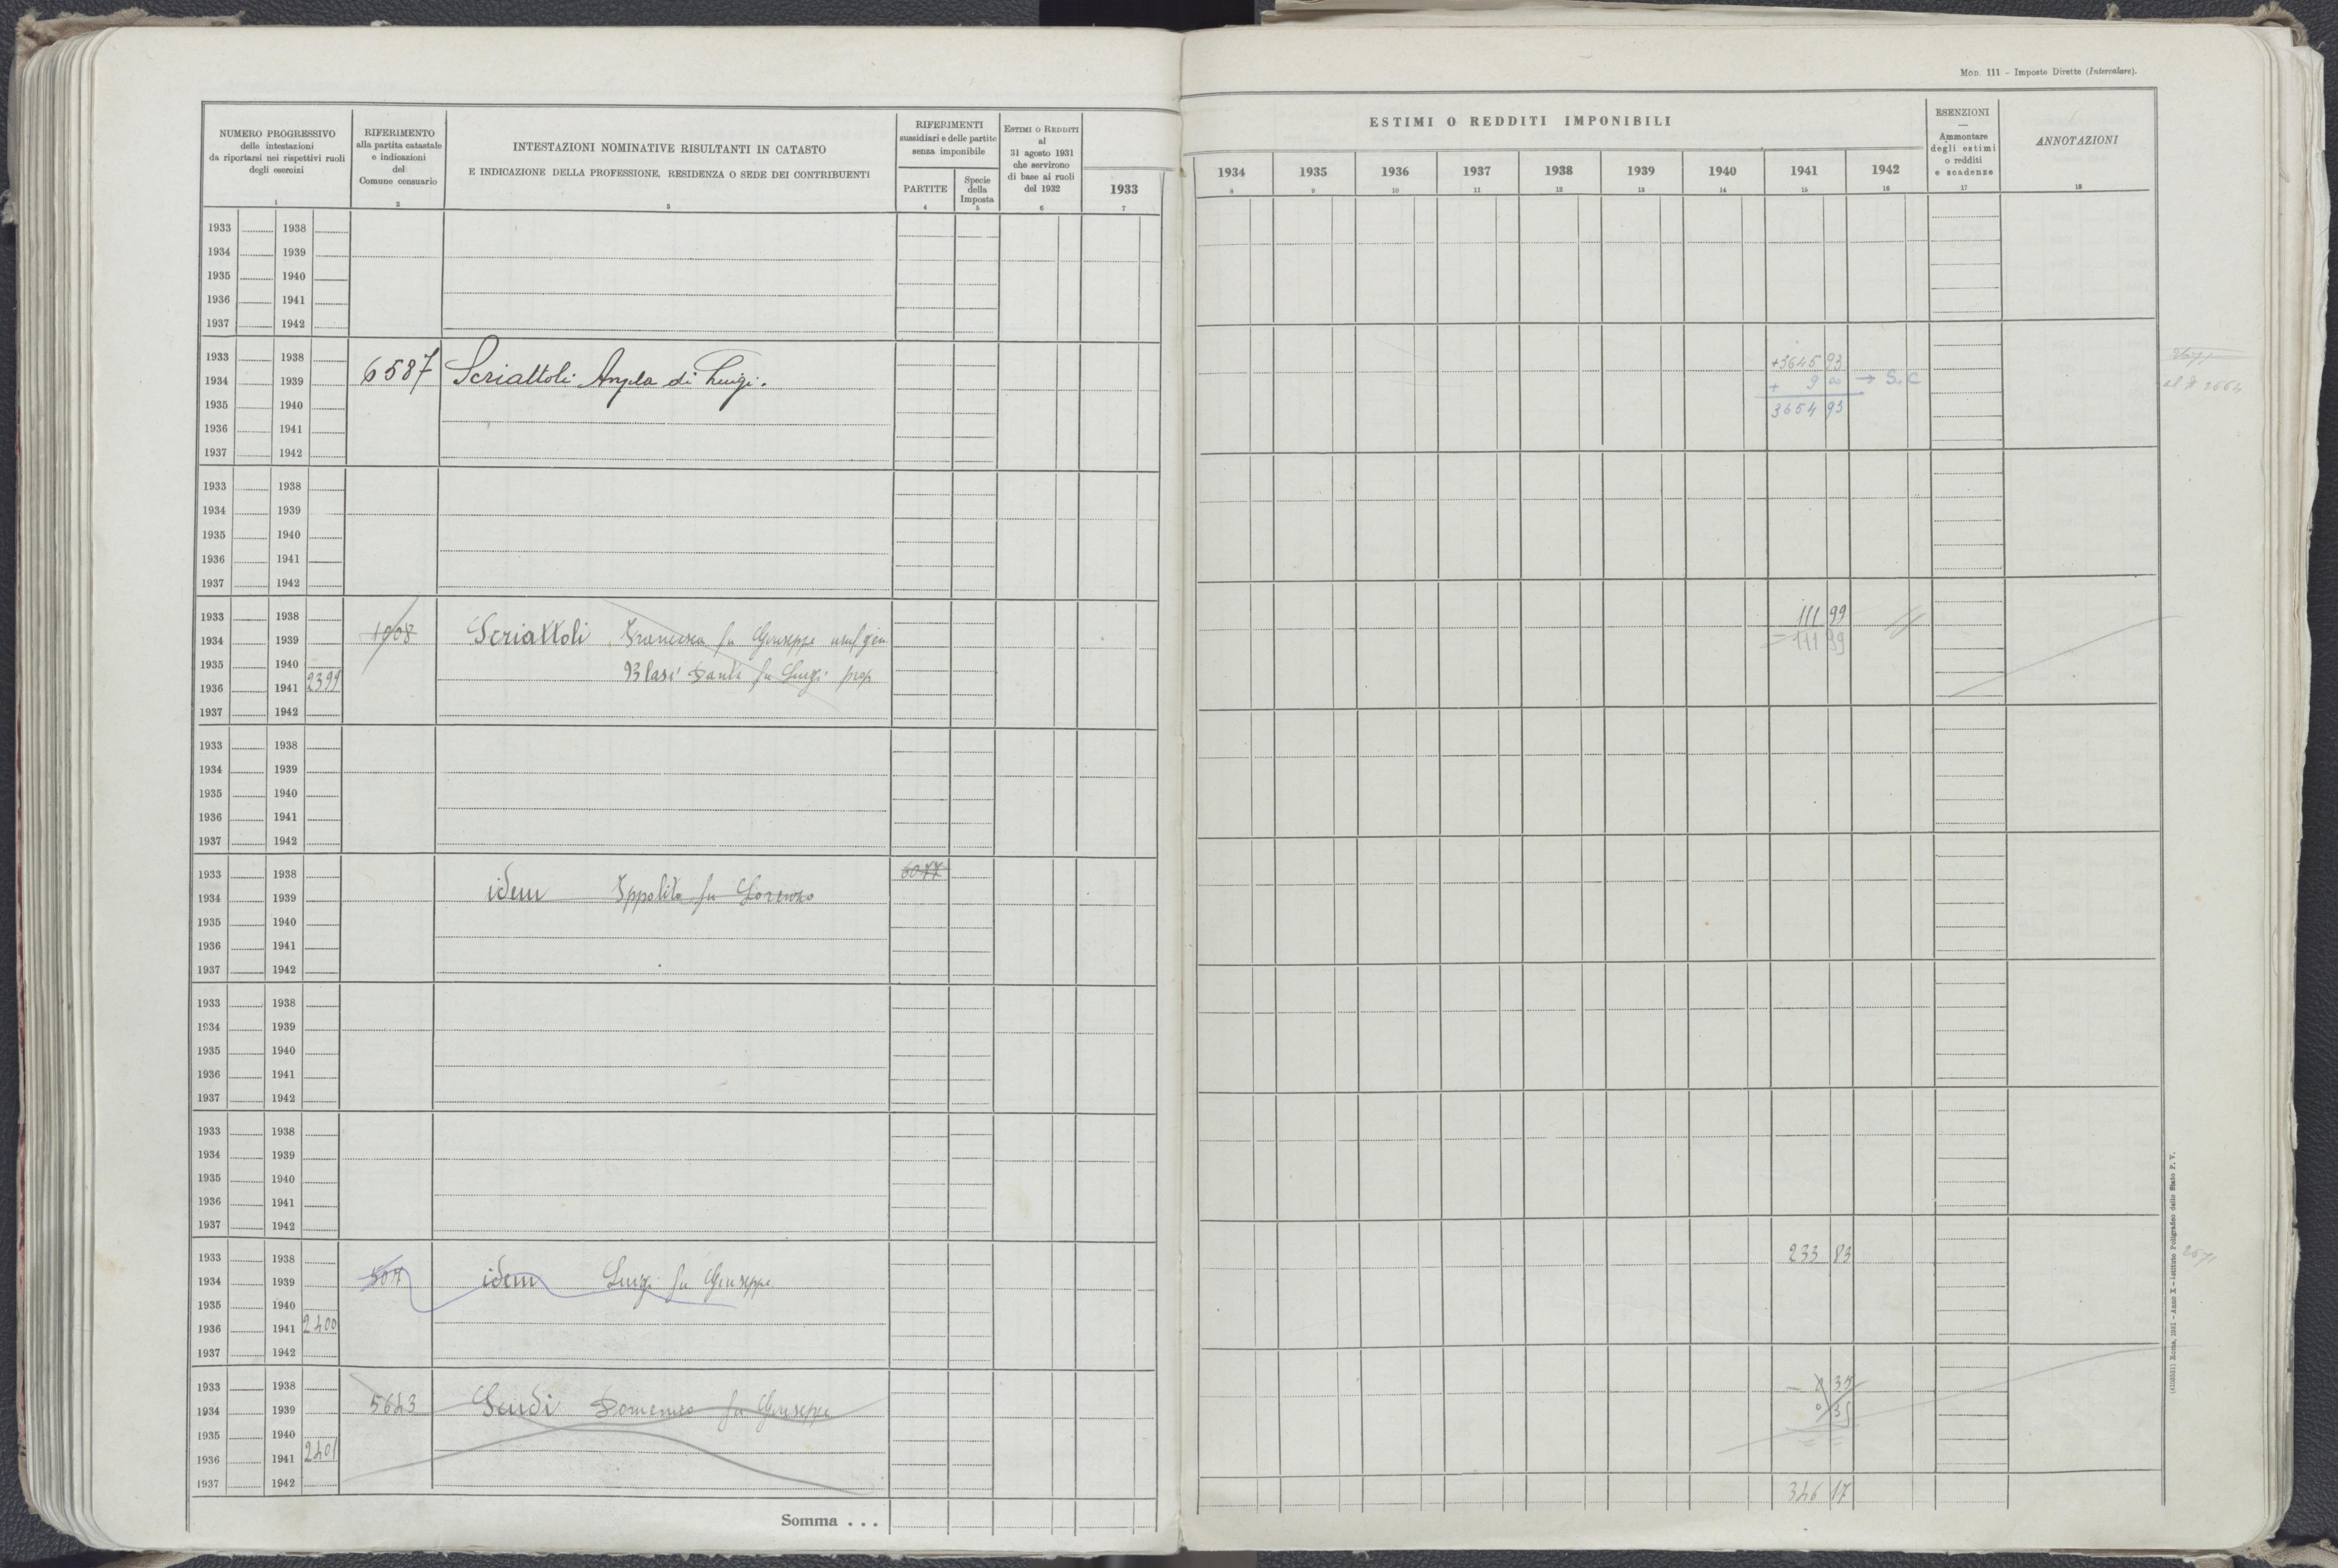 MOD. 111 – Imposte Dirette (Intercalare).
NUMERO PROGRESSIVO
delle intestazioni
da riportarsi nei rispettivi ruoli
degli esercizi
1
RIFERIMENTO
alla partita catastale
e indicazioni
del
Comune censuario
2
INTESTAZIONI NOMINATIVE RISULTANTI IN CATASTO
E INDICAZIONE DELLA PROFESSIONE, RESIDENZA O SEDE DEI CONTRIBUENTI
3
RIFERIMENTI
sussidiari e delle partite
senza imponibile
PARTITE
4
Specie
della
Imposta
5
ESTIMI O REDDITI
al
31 agosto 1931
che servirono
di base ai ruoli
del 1932
6
1933
7
ESTIMI O REDDITI IMPONIBILI
1934 1935 1936 1937 1938 1939 1940 1941 1942
8 9 10 11 12 13 14 15 16
ESENZIONI
—
Ammontare
degli estimi
o redditi
e scadenze
17
ANNOTAZIONI
18
1933 1938
1934 1939
1935 1940
1936 1941
1937 1942
1933 1938 +3645 93
1934 1939 6587 Scriattoli Angela di Luigi. + 9 00 → S.C
1935 1940 3654 93
1936 1941
1937 1942
1933 1938
1934 1939
1935 1940
1936 1941
1937 1942
1933 1938 111 99
1934 1939 1008 Scriattoli Francesca fu Giuseppe usuf gen – 111 99
1935 1940 Blasi Dante fu Luigi prop
1936 1941 2399
1937 1942
1933 1938
1934 1939
1935 1940
1936 1941
1937 1942
1933 1938 6077
1934 1939 idem Ippolito fu Lorenzo
1935 1940
1936 1941
1937 1942
1933 1938
1934 1939
1935 1940
1936 1941
1937 1942
1933 1938
1934 1939
1935 1940
1936 1941
1937 1942
1933 1938 233 83
1934 1939 idem Luigi fu Giuseppe
1935 1940
1936 1941 2400
1937 1942
1933 1938 – 0 35
1934 1939 5643 Scudi Domenico fu Giuseppe 0 35
1935 1940
1936 1941 2401
1937 1942
346 17
Somma . . .
(4103551) Roma, 1931 – Anno X – Istituto Poligrafico dello Stato P. V.